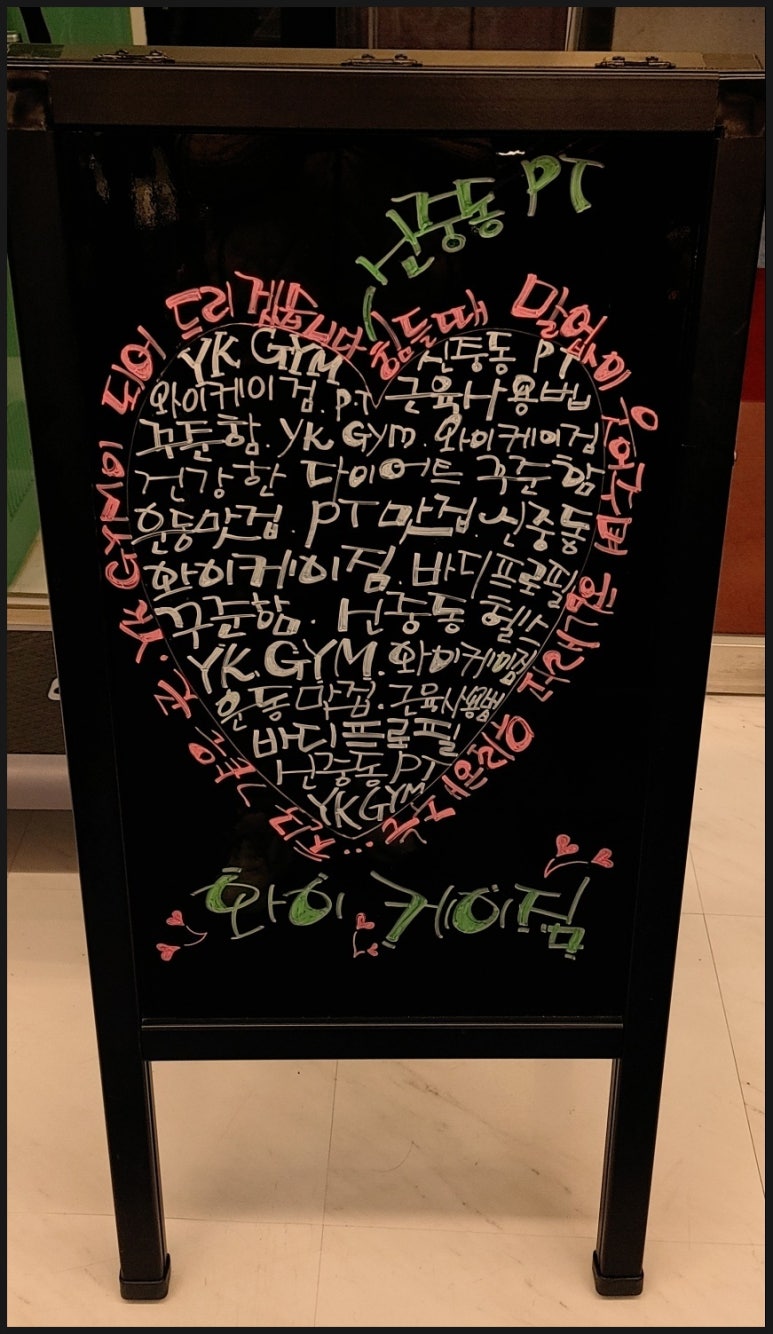 신중동 PT
힘들때 말없이 웃어주며 힘내라고 해주는... 친구 같은 곳. YK GYM이 되어 드리겠습니다
YK GYM 신중동 PT
와이케이짐. PT 근육사용법
꾸준함. YK GYM. 와이케이짐
건강한 다이어트 꾸준함
운동맛집. PT 맛집. 신중동
와이케이짐. 바디프로필
꾸준함. 신중동 헬스
YK. GYM. 와이케이짐
운동맛집. 근육사용법
바디프로필
신중동 PT
YK GYM
와이케이짐